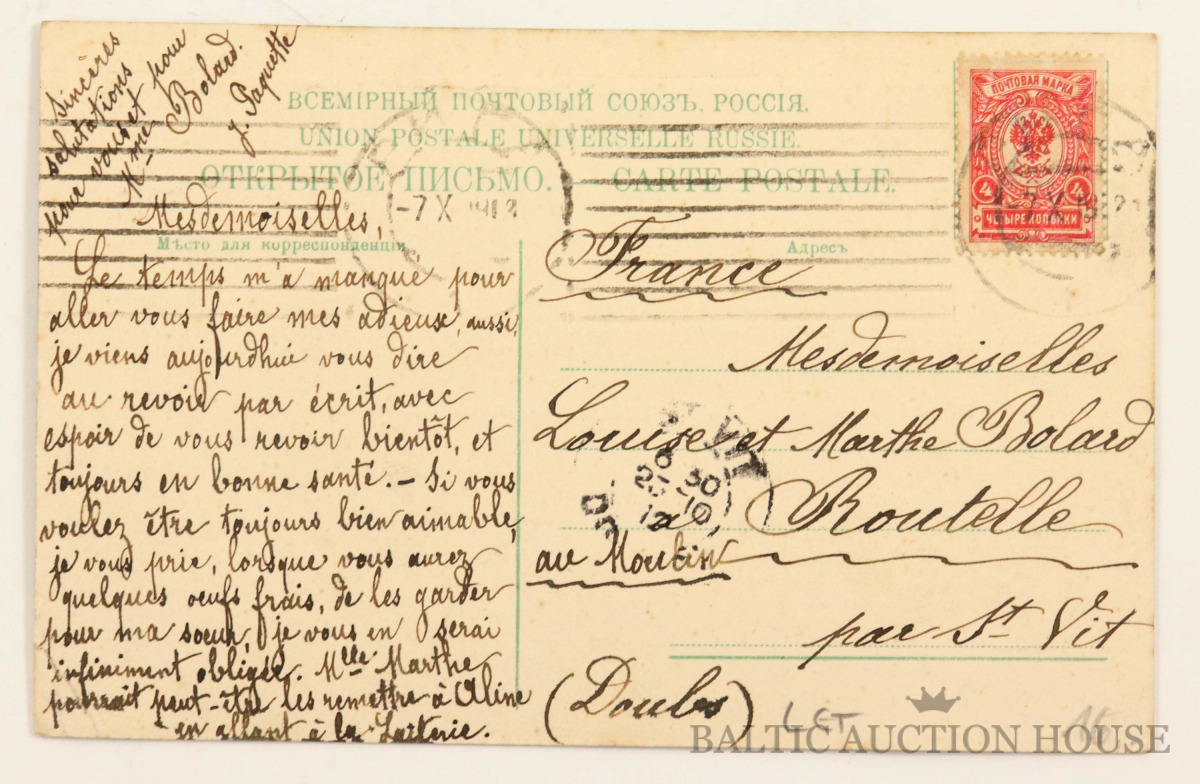 Sincères
salutations
pour vous et pour
Mme Bolard.
J. Paquette
ВСЕМІРНЫЙ ПОЧТОВЫЙ СОЮЗЪ. РОССІЯ.
UNION POSTALE UNIVERSELLE RUSSIE.
ОТКРЫТОЕ ПИСЬМО. — CARTE POSTALE.
Мѣсто для корреспонденціи
Адресъ
ПОЧТОВАЯ МАРКА
4 4
ЧЕТЫРЕ КОПѢЙКИ
-7 X
Mesdemoiselles,
Le temps m'a manqué pour
aller vous faire mes adieux, aussi,
je viens aujourdhui vous dire
au revoir par écrit, avec
espoir de vous revoir bientôt, et
toujours en bonne santé. — Si vous
voulez être toujours bien aimable,
je vous prie, lorsque vous aurez
quelques oeufs frais, de les garder
pour ma soeur, je vous en serai
infiniment obligée. Mlle Marthe
pourrait peut-être les remettre à Aline
en allant à la Laiterie.
France
Mesdemoiselles
Louise et Marthe Bolard
à Routelle
au Moulin
par St Vit
(Doubs)
VIT
20 30
LET
15
BALTIC AUCTION HOUSE